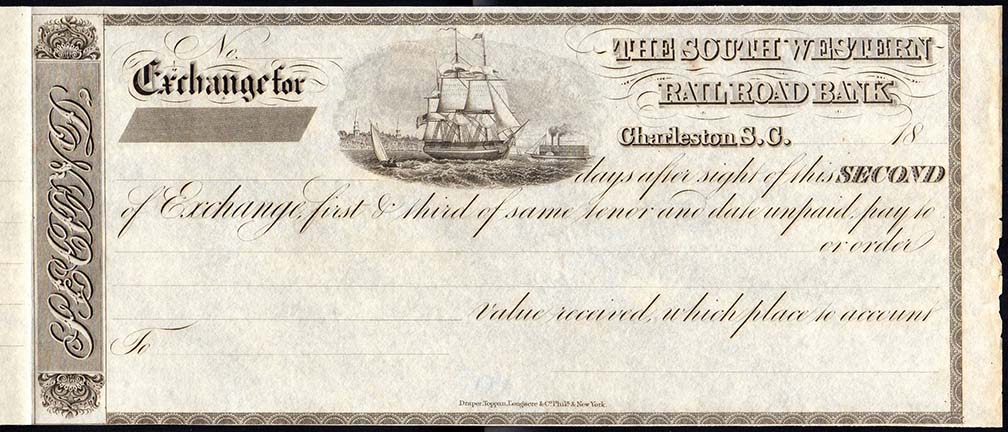 No.
Exchange for
THE SOUTH WESTERN
RAIL ROAD BANK
Charleston, S. C. 18
days after sight of this SECOND
of Exchange, first & third of same tenor and date unpaid, pay to
or order
Value received, which place to account
To
Draper, Toppan, Longacre & Co. Phila. & New York.